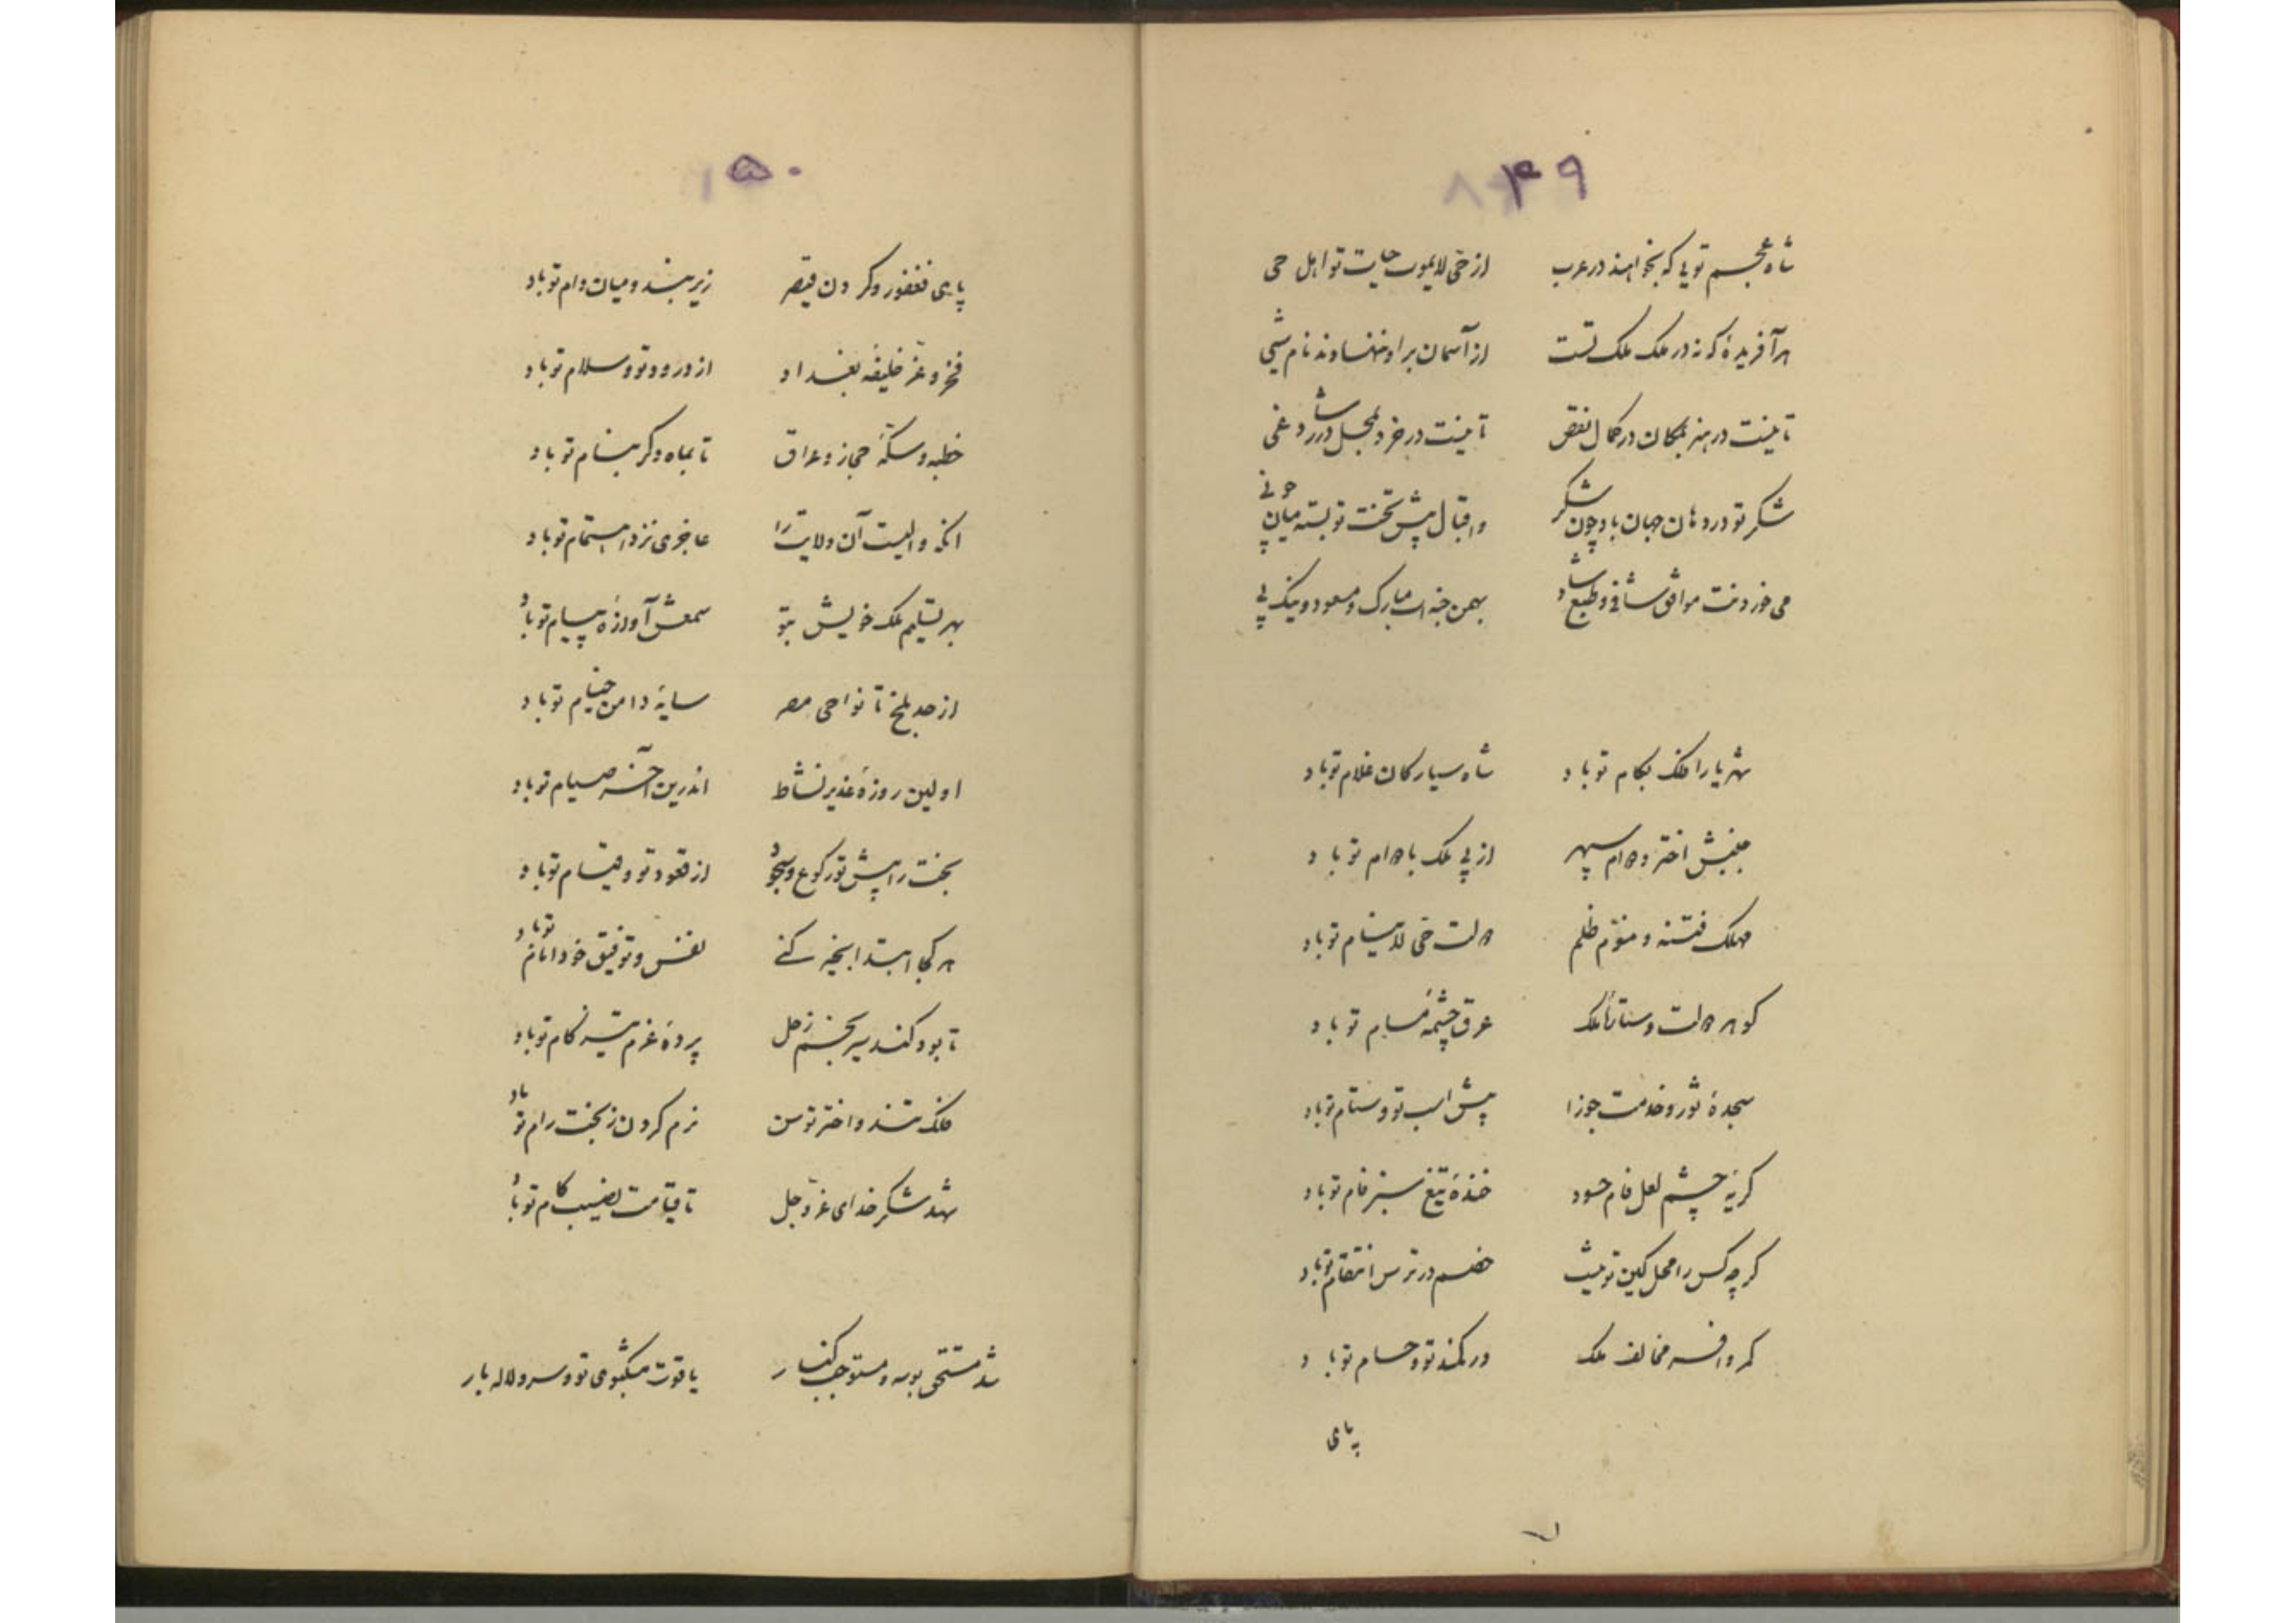 ۱۴۹
شاه عجم تویی که بخواهند در عرب از حی لایموت حیات تو اهل حی
هر آفریدهٔ که نه در ملک ملک تست از آسمان بر او ننهاوند نام شیی
تا نیست در هنر بمکان در کمال نقص تا نیست در خرد بمحل در رشاد غی
شکر تو در دهان جهان باد چون شکر و اقبال پیش تخت تو بسته میان چو نی
می خور دنت موافق شافی و طبع شاد بهمن جنه ات مبارک و مسعود و نیک پی
شهریارا فلک بکام تو باد شاه سیارکان غلام تو باد
جنبش اختر و مرام سپهر از پی ملک با مرام تو باد
مهلک فتنه و منوم ظلم دولت حی لاینام تو باد
کوهر دولت و ستارهٔ ملک عرق چشمهٔ مسام تو باد
سجدهٔ ثور و خدمت جوزا پیش اسب تو و ستام تو باد
کریهٔ چشم لعل فام حسود خندهٔ تیغ سبز فام تو باد
کرچه کس را محل کین تو نیست خصم در ترس انتقام تو باد
کمر و افسر مخالف ملک در کمند تو و حسام تو باد
پای
۱۵۰
پای فغفور و کردن قیصر زیر بند و میان دام تو باد
فخر و عز خلیفه بغداد از درود تو و سلام تو باد
خطبه و سکهٔ حجاز و عراق تا بماه دکر بنام تو باد
انکه والیست آن ولایت را عاجزی نزد اهتمام تو باد
بهر تسلیم ملک خویش بتو سمعش آوازهٔ پیام تو باد
از حد بلخ تا نواحی مصر سایهٔ دامن خیام تو باد
اولین روزهٔ غدیر نشاط اندرین آخر صیام تو باد
بخت را پیش تو رکوع و سجود از قعود تو و قیام تو باد
هر کجا ابتدا بخیر کنی نفس و توفیق خود امام تو باد
تا بود کند سیر نجم زحل پردهٔ عزم تیز کام تو باد
فلک تند و اختر توسن نرم کردن ز بخت رام تو باد
شهد شکر خدای عز و جل تا قیامت نصیب کام تو باد
شد مستحق بوسه و مستوجب کنار یاقوت مشکبوی تو و سرو لاله بار